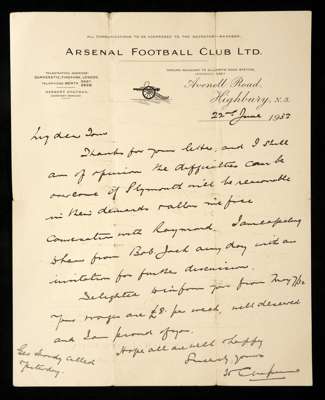 ALL COMMUNICATIONS TO BE ADDRESSED TO THE SECRETARY-MANAGER.
ARSENAL FOOTBALL CLUB LTD.
TELEGRAPHIC ADDRESS:
GUNNERETIC, FINSPARK, LONDON.
HERBERT CHAPMAN,
SECRETARY-MANAGER
Avenell Road,
Highbury, N.5.
22nd June 1932
My dear Tom
Thanks for your letter, and I still
am of opinion the difficulties can be
overcome if Plymouth will be reasonable
in their demands
conversation with Raymond. I am expecting
to hear from Bob Jack any day with an
invitation for further discussion.
Delighted to inform you from May 7/32
your wages are £8. per week, well deserved
and I am proud of you.
Hope all are well & happy
Sincerely yours
Geo called
yesterday.